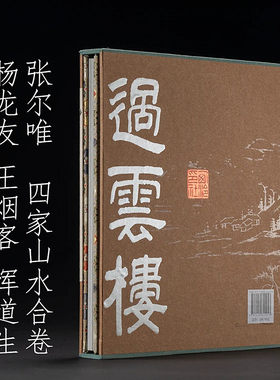 张尔唯 四家山水合卷
杨龙友 王烟客 恽道生
過雲樓